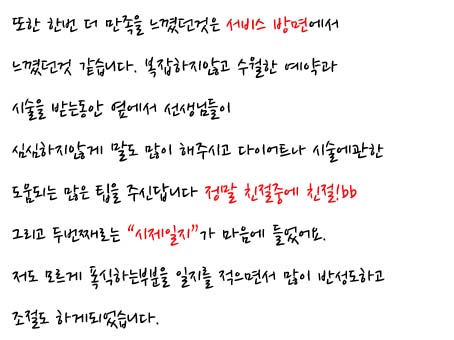 또한 한번 더 만족을 느꼈던것은 서비스 방면에서
느꼈던것 같습니다. 복잡하지않고 수월한 예약과
시술을 받는동안 옆에서 선생님들이
심심하지않게 말도 많이 해주시고 다이어트나 시술에관한
도움되는 많은 팁을 주신답니다 정말 친절중에 친절!bb
그리고 두번째로는 “시제일지”가 마음에 들었어요.
저도 모르게 폭식하는부분을 일지를 적으면서 많이 반성도하고
조절도 하게되었습니다.